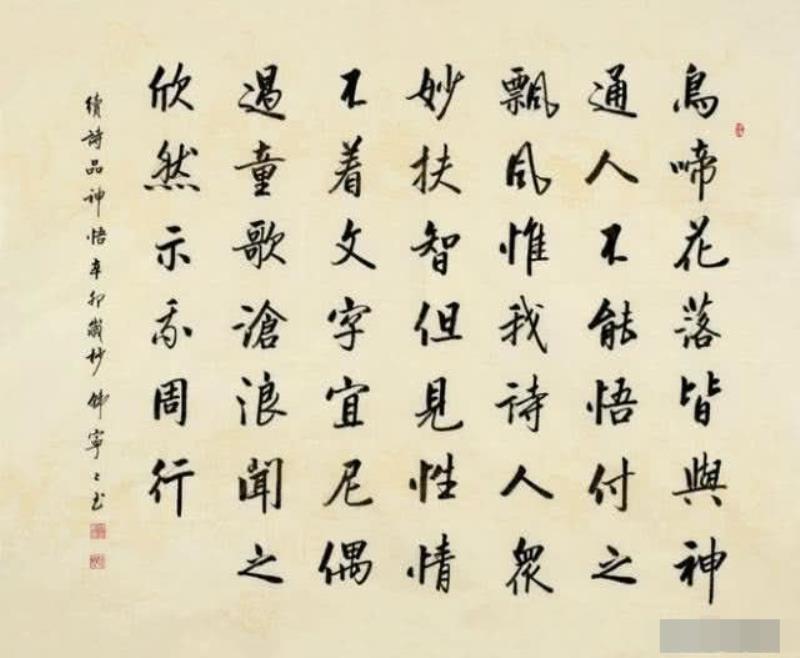 鳥啼花落皆與神
通人不能悟付之
飄風惟我詩人衆
妙扶智但見性情
不着文字宣尼偶
過童歌滄浪聞之
欣然示我周行
續詩品神悟辛卯歲杪韓寧〻书